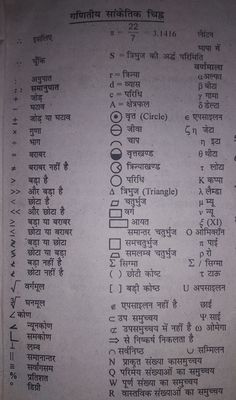 गणितीय सांकेतिक चिह्न
∴ इसलिए
∵ चूँकि
: अनुपात
:: समानुपात
+ जोड़
− घटाव
± जोड़ या घटाव
× गुणा
÷ भाग
= बराबर
≠ बराबर नहीं है
> बड़ा है
और बड़ा है
< छोटा है
और छोटा है
छोटा या बराबर
बड़ा या बराबर
बड़ा या छोटा
छोटा या बड़ा
बड़ा नहीं है
छोटा नहीं है
√ वर्गमूल
∛ घनमूल
∠ कोण
न्यूनकोण
समकोण
⊥ लम्ब
समानान्तर
सर्वांगसम
% प्रतिशत
° डिग्री
π = 22/7 = 3.1416
S = त्रिभुज की अर्द्ध परिमिति
r = त्रिज्या
d = व्यास
c = परिधि
A = क्षेत्रफल
वृत (Circle)
जीवा
चाप
वृत्तखण्ड
त्रिज्याखण्ड
परिधि
Δ त्रिभुज (Triangle)
चतुर्भुज
वर्ग
आयत
समान्तर चतुर्भुज
समचतुर्भुज
समलम्ब चतुर्भुज
Σ सिग्मा
( ) छोटी कोष्ट
[ ] बड़ी कोष्ठ
∉ एपसाइलन नहीं है
⊂ उप समुच्चय
⊄ उपसमुच्चय में नहीं है
⇒ से निष्कर्ष निकलता है
∩ सर्वनिष्ठ
∪ सम्मिलन
N प्राकृत संख्या का समुच्चय
Q परिमेय संख्याओं का समुच्चय
W पूर्ण संख्या का समुच्चय
R वास्तविक संख्याओं का समुच्चय
ग्रीशियन
भाषा में
वर्णमाला
α अल्फा
β बीटा
γ गामा
δ डेल्टा
ε एपसाइलन
ζ जेटा
η इटा
θ थीटा
ι लोटा
K कप्पा
λ लैम्डा
μ म्यू
ν न्यू
ξ (XI)
O ओमिक्रॉन
π पाई
ρ रो
Σ / सिग्मा
τ टाऊ
υ अपसाइलन
छाई
Ψ साई
ω ओमेगा